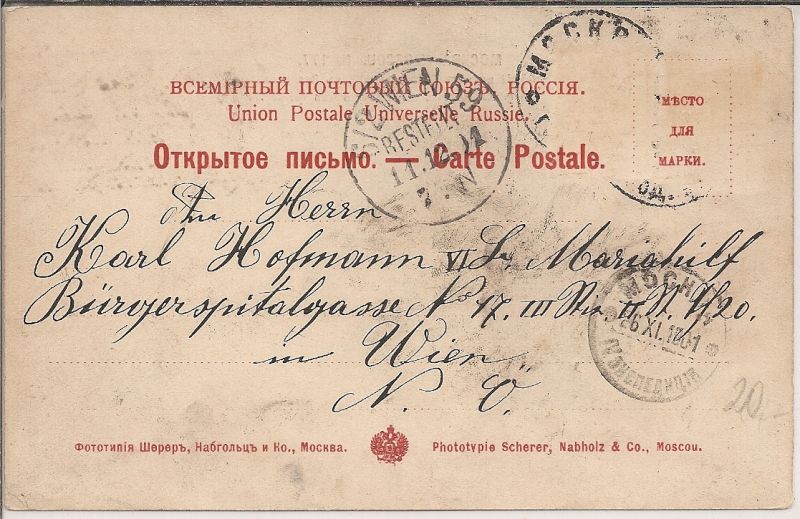 ВСЕМІРНЫЙ ПОЧТОВЫЙ СОЮЗЪ. РОССІЯ.
Union Postale Universelle Russie.
Открытое письмо. — Carte Postale.
МѢСТО
ДЛЯ
МАРКИ.
МОСКВА
WIEN 59
BESTELLT
11.12.01
7. N
An Herrn
Karl Hofmann VI Mariahilf
Bürgerspitalgasse No 17. III II
in Wien
N. Ö.
МОСКВА
26 XI. 1901
ЭКСПЕДИЦІЯ
20.-
Фототипія Шереръ, Набгольцъ и Ко., Москва.
Phototypie Scherer, Nabholz & Co., Moscou.